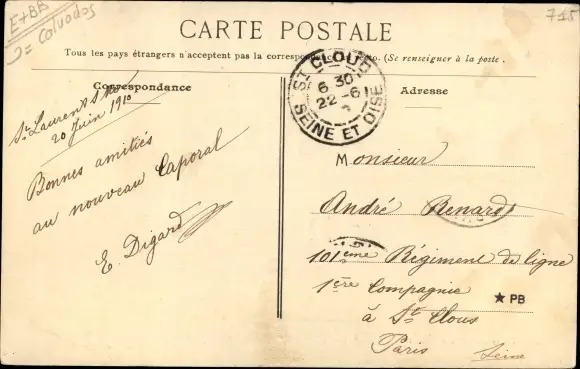 E+BB
J= Calvados
715
CARTE POSTALE
Tous les pays étrangers n'acceptent pas la correspondance (Se renseigner à la poste.
Correspondance
Adresse
ST CLOUD
6 30
22-6
SEINE ET OISE
St Laurent
20 Juin 1910
Bonnes amitiés
au nouveau Caporal
E. Digard
Monsieur
André Renard
101ème Régiment de ligne
1ère Compagnie
à St Clous
Paris
Seine
★ PB